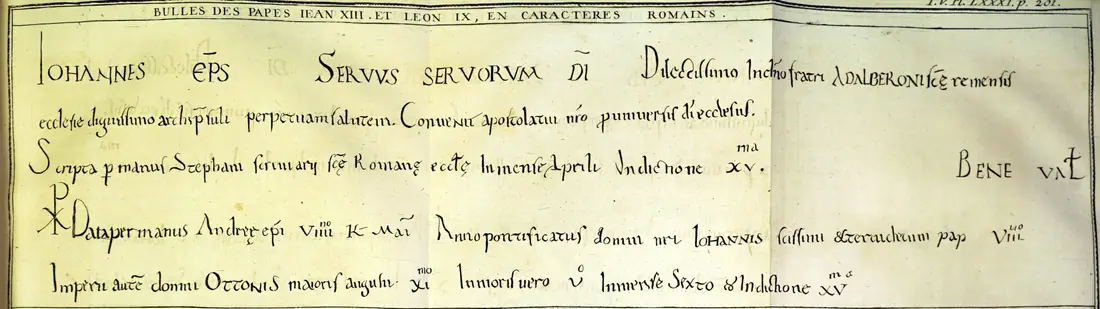 T.V. Pl. LXXXI. p. 201.
BULLES DES PAPES IEAN XIII. ET LEON IX, EN CARACTERES ROMAINS.
IOHANNES EP̄S SERVVS SERVORVM DĪ Dilectissimo In chr̄o fratri ADALBERONI sc̄ę remensis
ecclesie dignissimo archip̄suli perpetuam salutem. Convenit apostolatui nr̄o p̱ universis dī ecclesiis.
Scripta p̱ manus Stephani scriniarii sc̄ę Romanę eccl̄ę In mense Aprili Indictione XV.ma BENE VAL̄T
Data per manus Andreę ep̄i VIIII no K Maī Anno pontificatus domni nri IOHANNIS scissimi & terciidecimi pap VIIII uo
Imperii aut̄e domni OTTONIS maioris augusti XI mo In moris uero V o In mense Sexto & Indictione XV ma